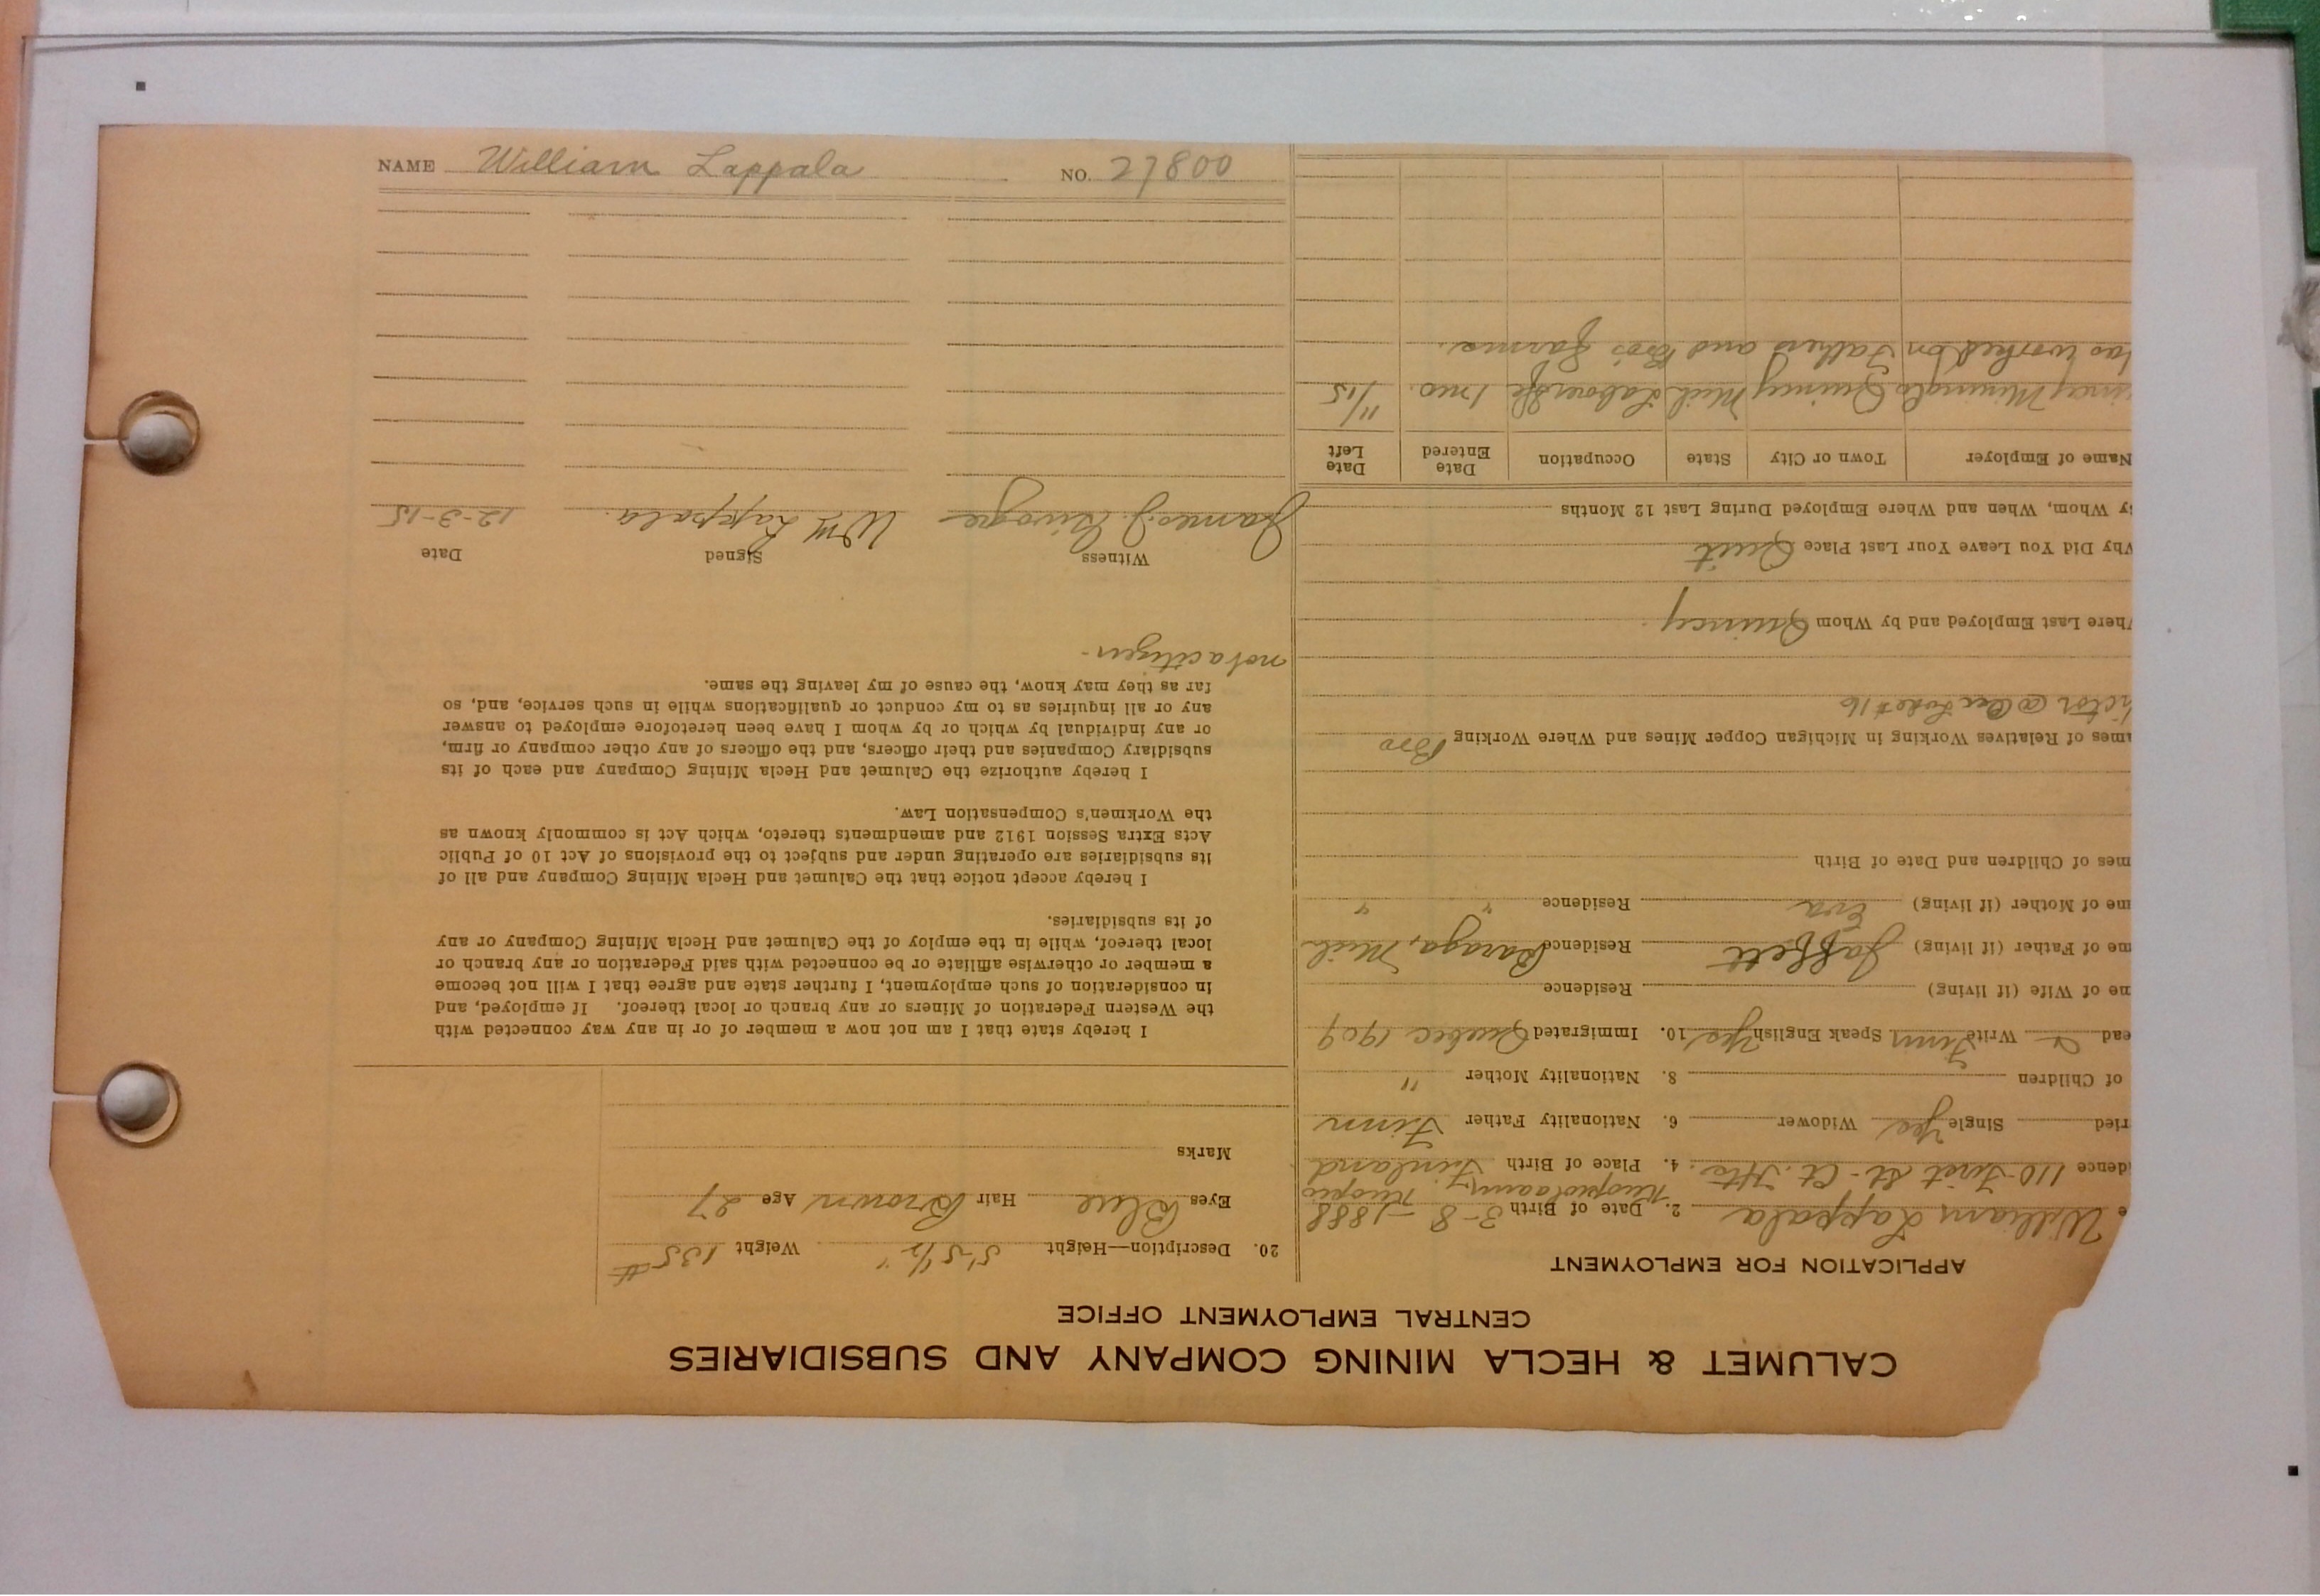 NAME William Lappala NO. 27800
CALUMET & HECLA MINING COMPANY AND SUBSIDIARIES
CENTRAL EMPLOYMENT OFFICE
APPLICATION FOR EMPLOYMENT
e William Lappala 2. Date of Birth 3-8-1888
Kuopiolaani, Kuopio
idence 110-First St- 4. Place of Birth Finland
ried Single Yes Widower 6. Nationality Father Finn
of Children 8. Nationality Mother "
ead Write Finn Speak English Yes 10. Immigrated Quebec 1909
me of Wife (if living) Residence
me of Father (if living) Jaffett Residence Baraga, Mich
me of Mother (if living) Eva Residence " "
mes of Children and Date of Birth
ames of Relatives Working in Michigan Copper Mines and Where Working Bro
ictor @ #16
here Last Employed and by Whom Quincy
Why Did You Leave Your Last Place Quit
By Whom, When and Where Employed During Last 12 Months
Name of Employer Town or City State Occupation Date Entered Date Left
Quincy Mich Laborer 1 mo. 11/15
has worked on Fathers and Bros farms.
20. Description—Height 5'5 1/2" Weight 135#
Eyes Blue Hair Brown Age 27
Marks
I hereby state that I am not now a member of or in any way connected with
the Western Federation of Miners or any branch or local thereof. If employed, and
in consideration of such employment, I further state and agree that I will not become
a member or otherwise affiliate or be connected with said Federation or any branch or
local thereof, while in the employ of the Calumet and Hecla Mining Company or any
of its subsidiaries.
I hereby accept notice that the Calumet and Hecla Mining Company and all of
its subsidiaries are operating under and subject to the provisions of Act 10 of Public
Acts Extra Session 1912 and amendments thereto, which Act is commonly known as
the Workmen's Compensation Law.
I hereby authorize the Calumet and Hecla Mining Company and each of its
subsidiary Companies and their officers, and the officers of any other company or firm,
or any individual by which or by whom I have been heretofore employed to answer
any or all inquiries as to my conduct or qualifications while in such service, and, so
far as they may know, the cause of my leaving the same.
not a citizen-
Witness Signed Date
James J. Wm Lappala. 12-3-15